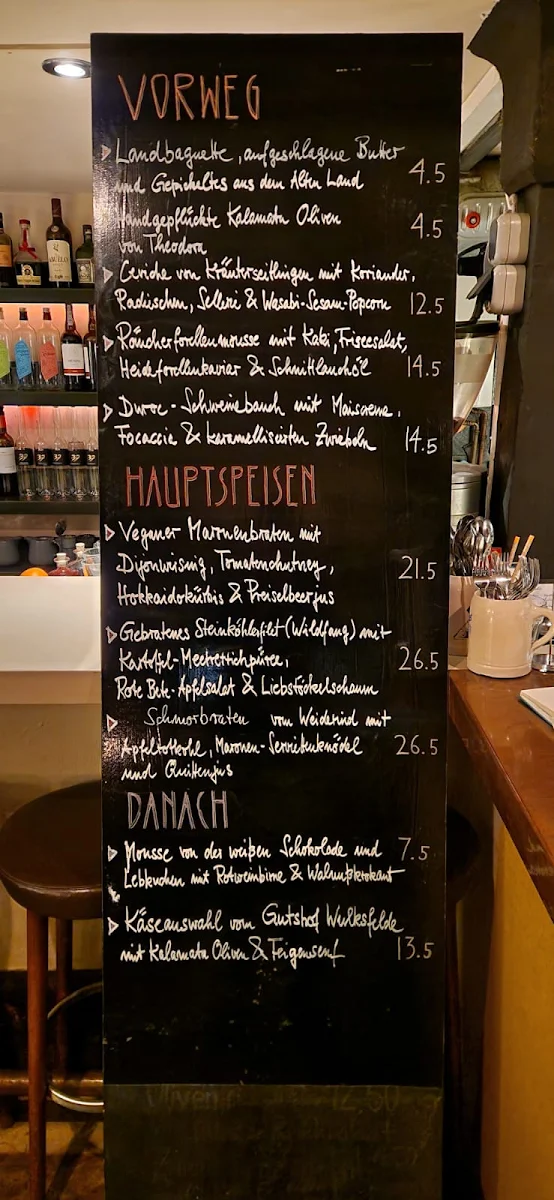 VORWEG
Landbaguette, aufgeschlagene Butter
und Gepickeltes aus dem Alten Land 4.5
Handgepflückte Kalamata Oliven 4.5
von Theodora
Ceviche von Kräuterseitlingen mit Koriander,
Radieschen, Sellerie & Wasabi-Sesam-Popcorn 12.5
Räucherforellenmousse mit Kaki, Friseesalat,
Heideforellenkaviar & Schnittlauchöl 14.5
Duroc-Schweinebauch mit Maiscreme,
Focaccia & karamellisierten Zwiebeln 14.5
HAUPTSPEISEN
Veganer Maronenbraten mit
Dijonwirsing, Tomatenchutney, 21.5
Hokkaidokürbis & Preiselbeerjus
Gebratenes Steinköhlerfilet (Wildfang) mit
Kartoffel-Meerrettichpüree, 26.5
Rote Bete-Apfelsalat & Liebstöckelschaum
Schmorbraten vom Weiderind mit
Apfelrotkohl, Maronen-Serviettenknödel 26.5
und Quittenjus
DANACH
Mousse von der weißen Schokolade und 7.5
Lebkuchen mit Rotweinbirne & Walnußkrokant
Käseauswahl vom Gutshof Wulksfelde
mit Kalamata Oliven & Feigensenf 13.5
Oliven